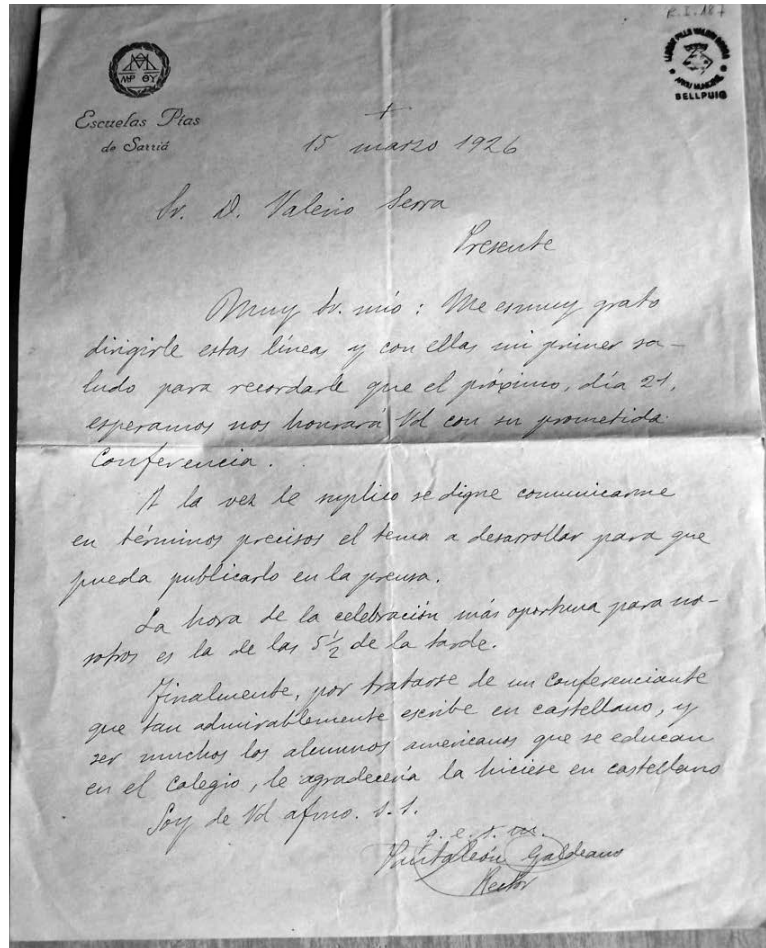 R.I. 187
MP ΘΥ
ARXIU MUNICIPAL
BELLPUIG
Escuelas Pías
de Sarriá
15 marzo 1926
Sr. D. Valerio Serra
Presente
Muy Sr. mío: Me es muy grato
dirigirle estas líneas y con ellas mi primer sa-
ludo para recordarle que el próximo, día 21,
esperamos nos honrará Vd con su prometida
Conferencia.
A la vez le suplico se digne comunicarme
en términos precisos el tema a desarrollar para que
pueda publicarlo en la prensa.
La hora de la celebración más oportuna para no-
sotros es la de las 5 1/2 de la tarde.
Finalmente, por tratarse de un conferenciante
que tan admirablemente escribe en castellano, y
ser muchos los alumnos americanos que se educan
en el Colegio, le agradecería la hiciese en castellano
Soy de Vd afmo. s. s.
q. e. s. m.
Pantaleón Galdeano
Rector